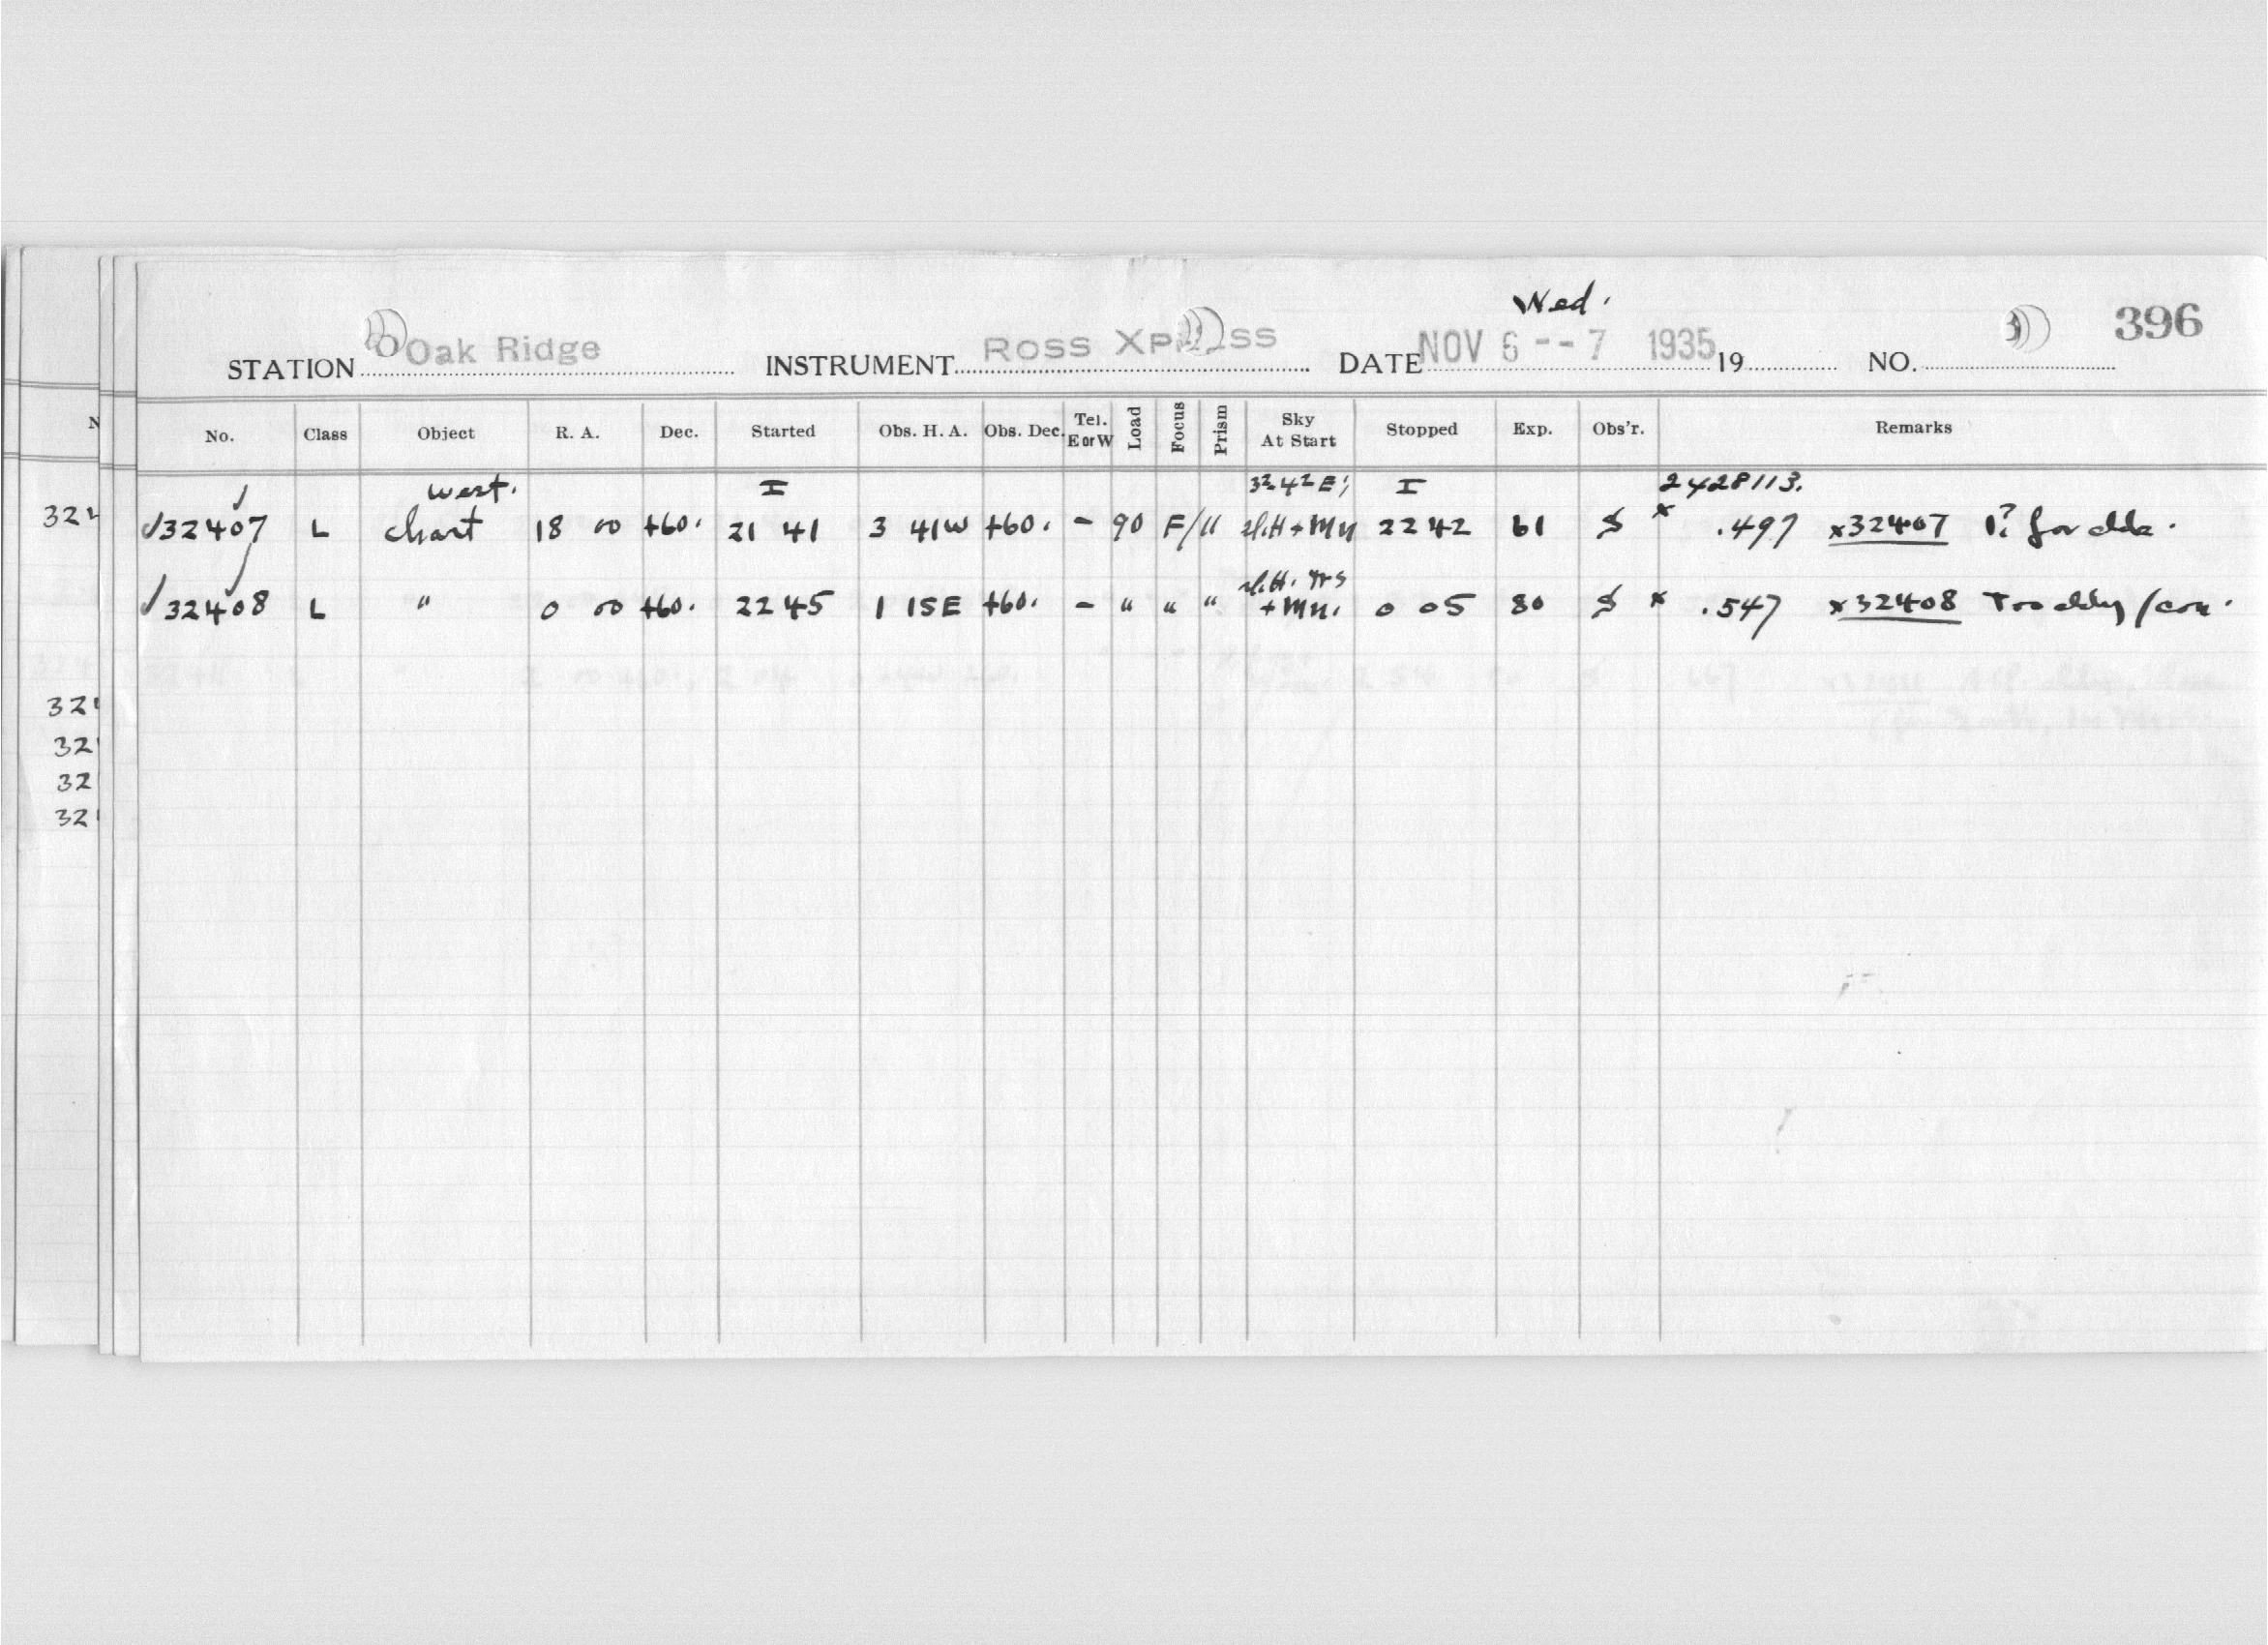 Wed.
STATION Oak Ridge INSTRUMENT ROSS XPRESS DATE NOV 6 -- 7 1935 19 NO. 396
No. Class Object R. A. Dec. Started Obs. H. A. Obs. Dec. Tel. E or W Load Focus Prism Sky At Start Stopped Exp. Obs'r. Remarks
West. I I 2428113.
32407 L Chart 18 00 +60. 21 41 3 41W +60. - 90 F/11 22 42 61 S x .497 x32407 1? for
32408 L " 0 00 +60. 22 45 1 15E +60. - " " " 0 05 80 S x .547 x32408 Too
N
32
32
32
32
32